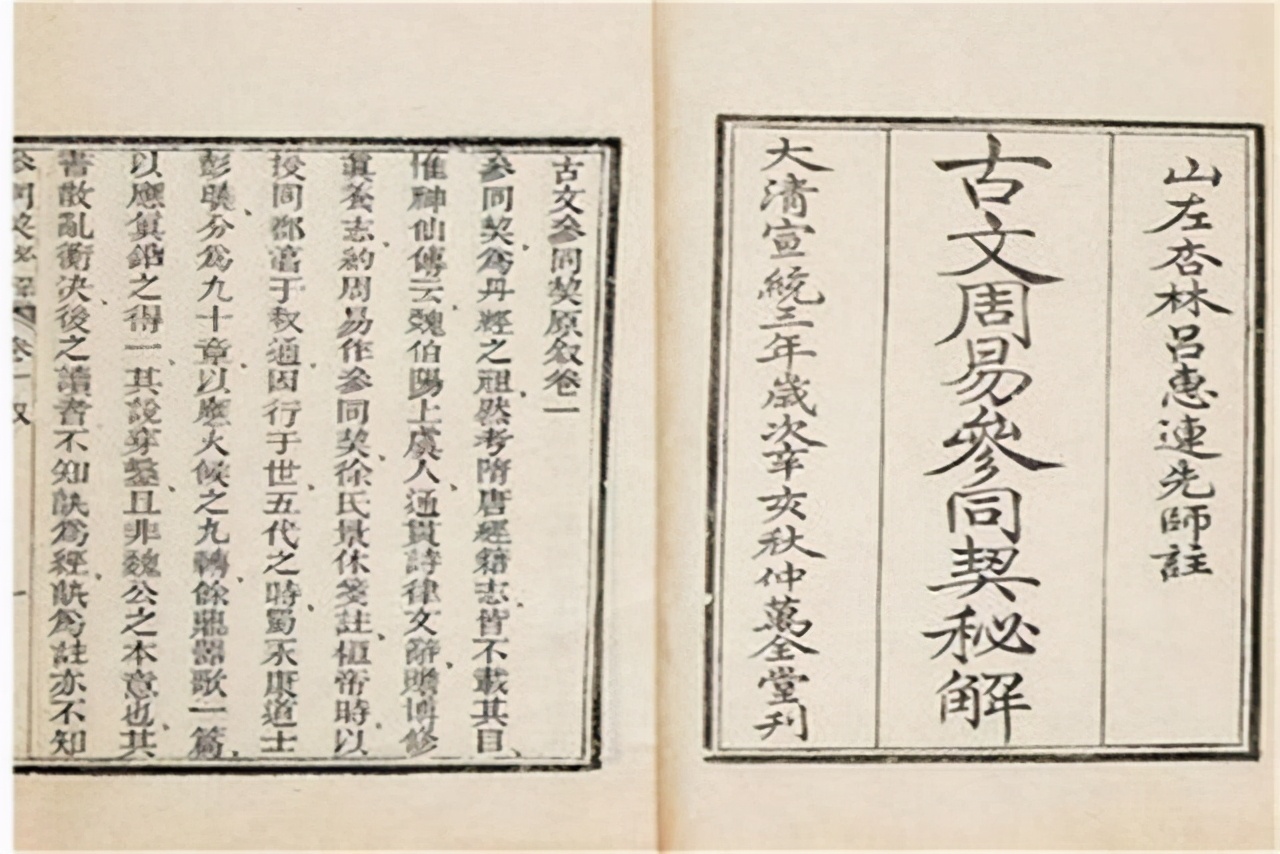 山左杏林呂惠連先師註
古文周易參同契秘解
大清宣統三年歲次辛亥秋仲萬全堂刊
古文參同契原敘卷一
參同契爲丹經之祖然考隋唐經籍志皆不載其目
惟神仙傳云魏伯陽上虞人通貫詩律文辭贍博修
眞養志約周易作參同契徐氏景休箋註桓帝時以
授同郡淳于叔通因行于世五代之時蜀永康道士
彭曉分爲九十章以應火候之九轉餘鼎器歌一篇
以應眞鉛之得一其說穿鑿且非魏公之本意也其
書散亂衡决後之讀者不知孰爲經孰爲註亦不知
參同契秘解 卷一 叙 一